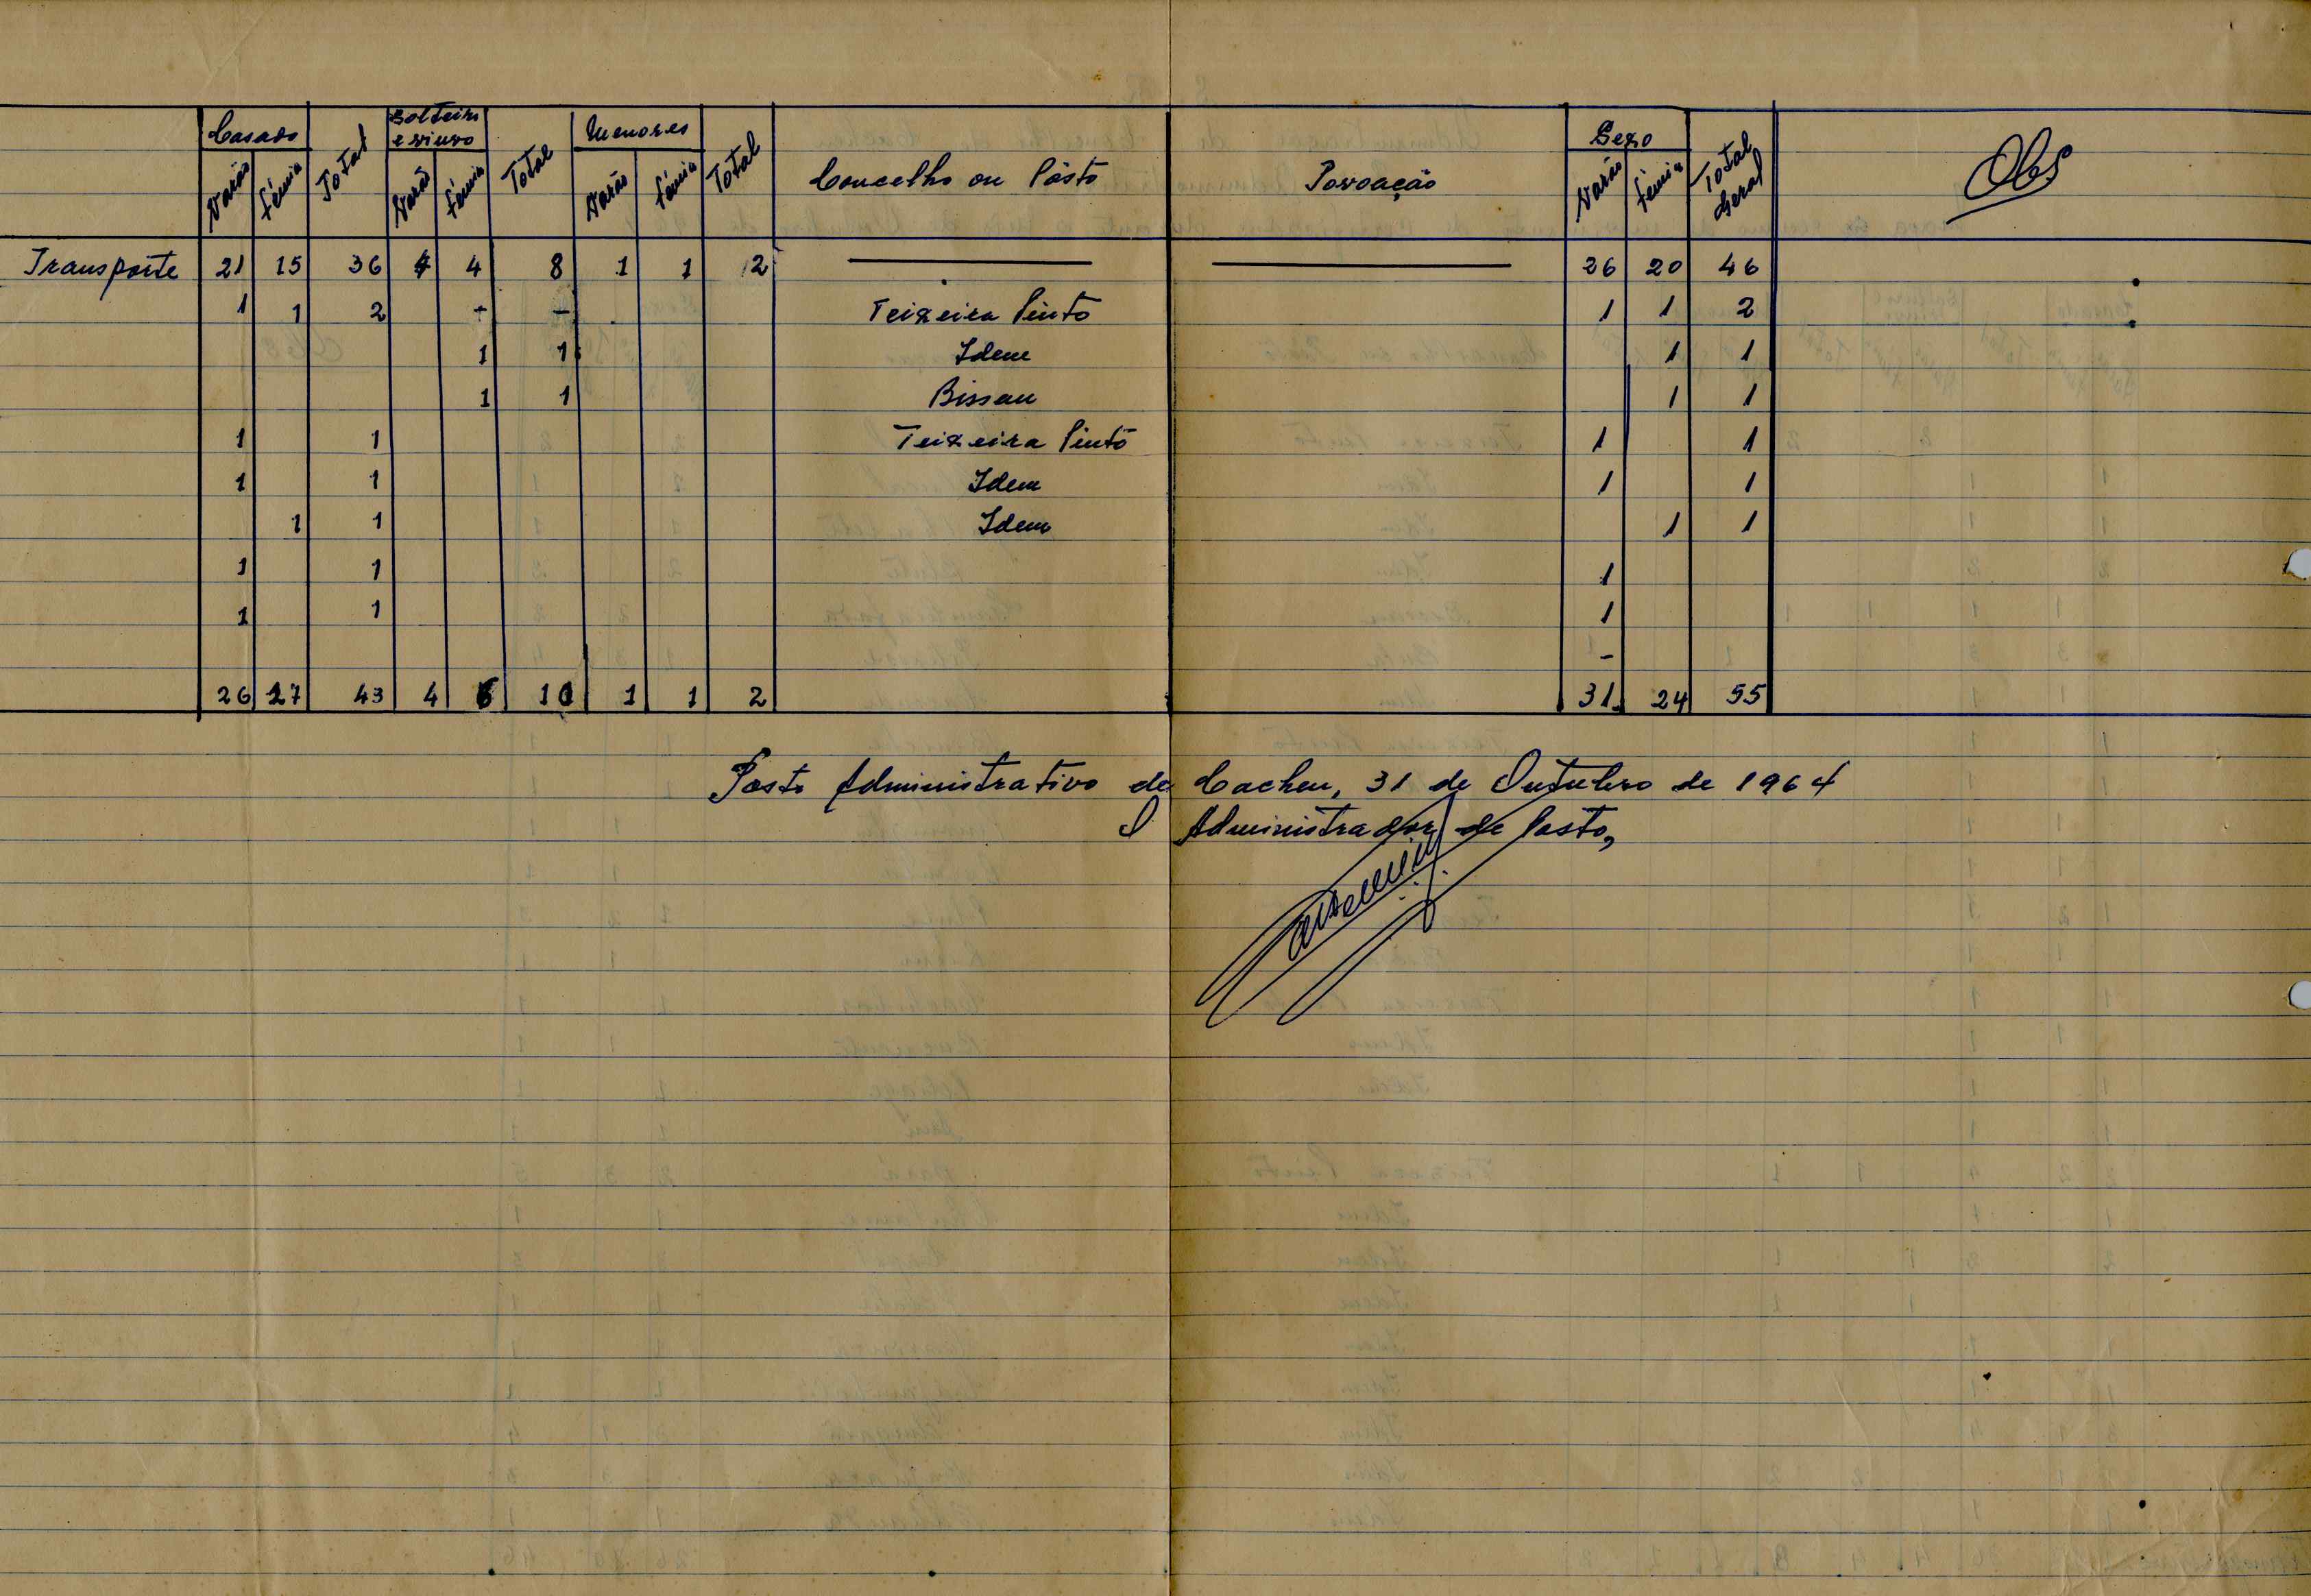 Casado Total Solteiro e viuvo Total Menores Total Concelho ou Pôsto Povoação Sexo Total Geral Obs
Varão Fémia Varão Fémia Varão Fémia Varão Fémia
Transporte 21 15 36 4 4 8 1 1 2 — — 26 20 46
1 1 2 - - Teixeira Pinto 1 1 2
1 1 Idem 1 1
1 1 Bissau 1 1
1 1 Teixeira Pinto 1 1
1 1 Idem 1 1
1 1 Idem 1 1
1 1 1
1 1 1
-
26 17 43 4 6 10 1 1 2 31 24 55
Posto Administrativo de Cacheu, 31 de Outubro de 1964
O Administrador de Posto,